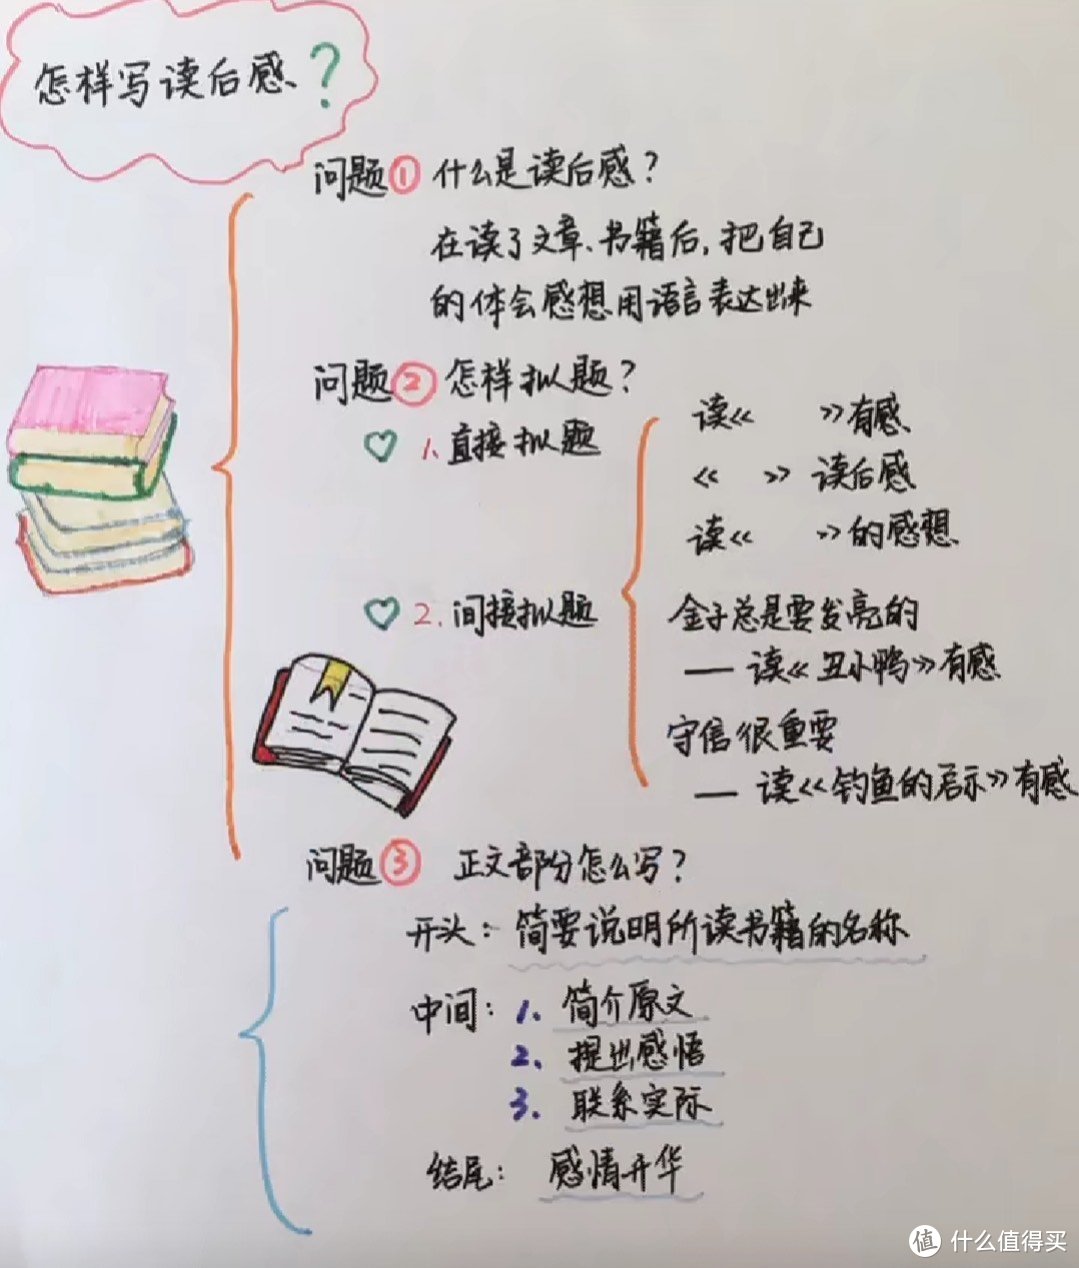 怎样写读后感？
问题① 什么是读后感？
在读了文章、书籍后，把自己
的体会感想用语言表达出来
问题② 怎样拟题？
1. 直接拟题
读《 》有感
《 》读后感
读《 》的感想
2. 间接拟题
金子总是要发亮的
——读《丑小鸭》有感
守信很重要
——读《钓鱼的启示》有感
问题③ 正文部分怎么写？
开头：简要说明所读书籍的名称
中间：1、简介原文
2、提出感悟
3、联系实际
结尾：感情升华
值 什么值得买